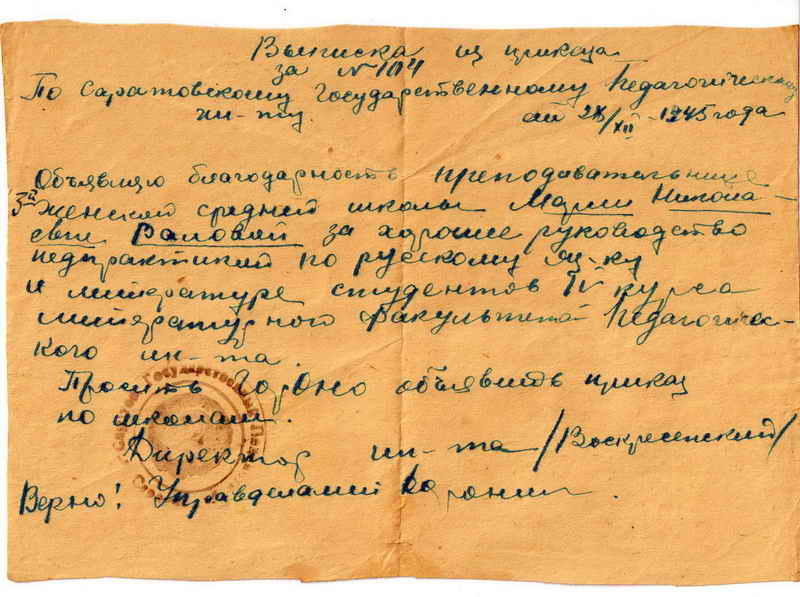 Выписка из приказа
за № 104
По Саратовскому Государственному Педагогическому
ин-ту. от 28/XII 1945 года
Объявляю благодарность преподавательнице
3й женской средней школы Марии Никола-
евне Валовой за хорошее руководство
педпрактикой по русскому яз-ку
и литературе студентов IV курса
литературного факультета Педагогичес-
кого ин-та.
Просить ГорОно объявить приказ
по школам.
Директор ин-та /Воскресенский/
Верно! Управделами